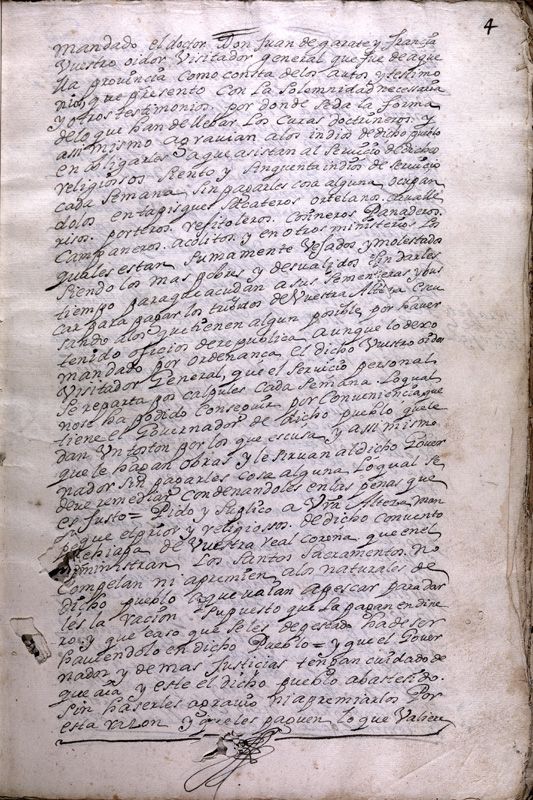 4
mandado el doctor Don Juan de garate y francia
Vuestro oidor Visitador general que fue de aque
lla provincia como consta de los autos y testimo
nios que presento con la solemnidad necessaria
y otros testimonios por donde se da la forma
de lo que han de llebar los Curas doctrineros y
asi mismo agravian a los indios de dicho pueblo
en obligarles a que asistan al servicio de dichos
religiosos siento y sinquenta indios de servicio
cada semana sin pagarles cosa alguna ocupan
dolos en tapisques sapateros ortelanos cavalle
risos porteros refitoleros cosineros Panaderos
Campaneros acolitos y en otros ministerios lo
quales estan sumamente vejados y molestados
siendo los mas pobres y desvalidos sin darles
tiempo para que acudan a sus sementeras y bus
car para pagar los tributos de Vuestra Alteza escu
sando a los que tienen algun posible por haver
tenido oficios de republica aunque lo dexo
mandado por ordenanca el dicho Vuestro oidor
Visitador General, que el servicio personal
se reparta por calpules cada semana lo qual
no se ha podido conseguir por conveniencia que
tiene el Governador de dicho pueblo que le
dan un toston por los que escusa y asi mismo
que le hagan obras y le sirvan al dicho Gover
nador sin pagarles cosa alguna lo qual se
deve remediar condenandoles en las penas que
es justo = Pido y suplico a Vra Alteza man
de que el prior y religiosos de dicho convento
de chiapa de Vuestra real corona que en el
administran los santos sacramentos no
compelan ni apremien a los naturales de
dicho pueblo a que vaian a pescar para dar
les la racion supuesto que la pagan en dine
ro y que caso que se les de pescado ha de ser
haviendolo en dicho Pueblo = y que el Gover
nador y demas justicias tengan cuidado de
que aia y este el dicho pueblo abastesido
sin haserles agravio ni apremiarlos Por
esta razon y que les paguen lo que valiere